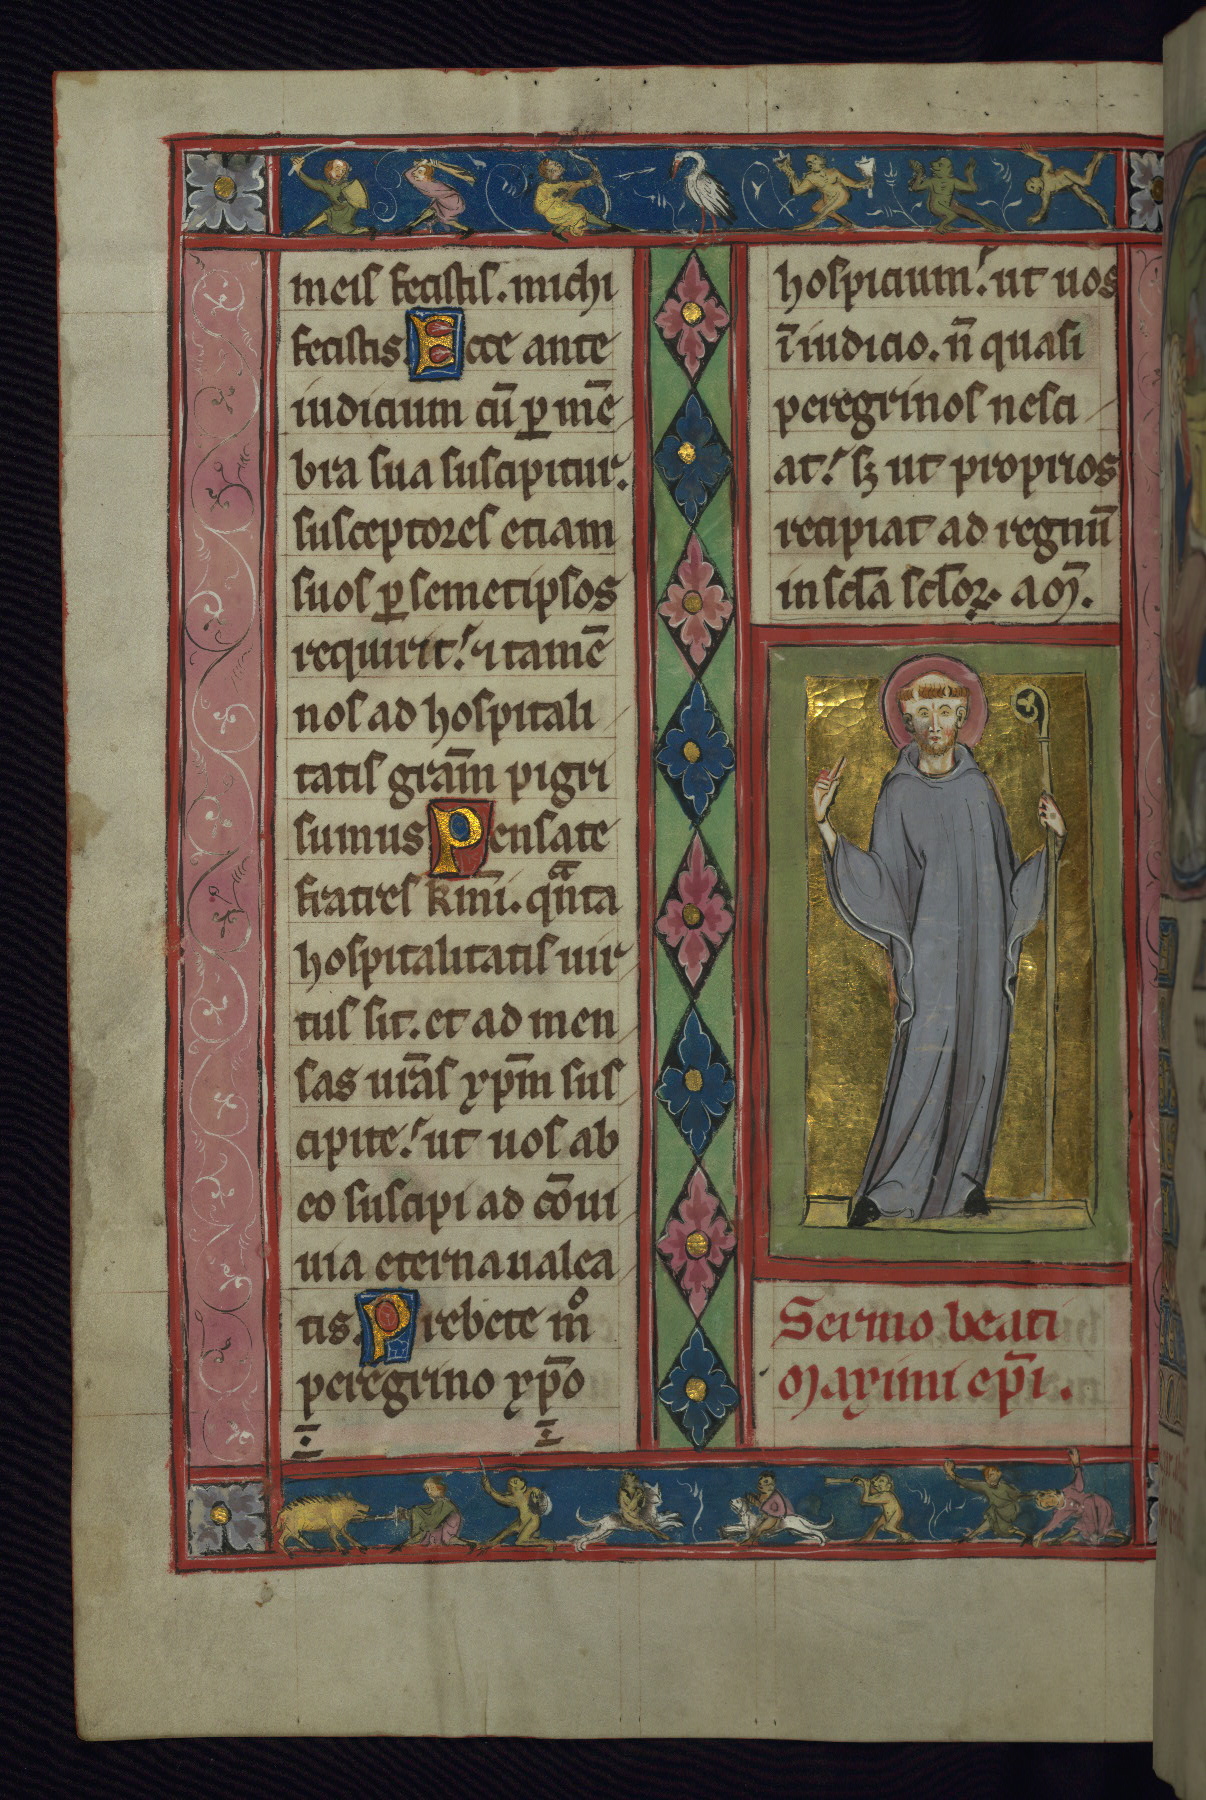 meis fecistis. michi
fecistis Ecce ante
iudicium cū p̱ mē
bra sua suscipitur.
susceptores etiam
suos p̱ semetipsos
requirit! ⁊ tamē
nos ad hospitali
tatis gr̄am pigri
sumus Pensate
fratres k̄mi. qͣnta
hospitalitatis uir
tus sit. et ad men
sas ur̄as xp̄m sus
cipite! ut uos ab
eo suscipi ad cōui
uia eterna ualea
tis. Prebete mͦ
peregrino xp̄o
hospicium! ut uos
ī iudicio. n̄ quasi
peregrinos nesci
at! sꝫ ut proprios
recipiat ad regnū
in scl̄a scl̄oꝝ. am̄.
Sermo beati
Maximi ep̄i.